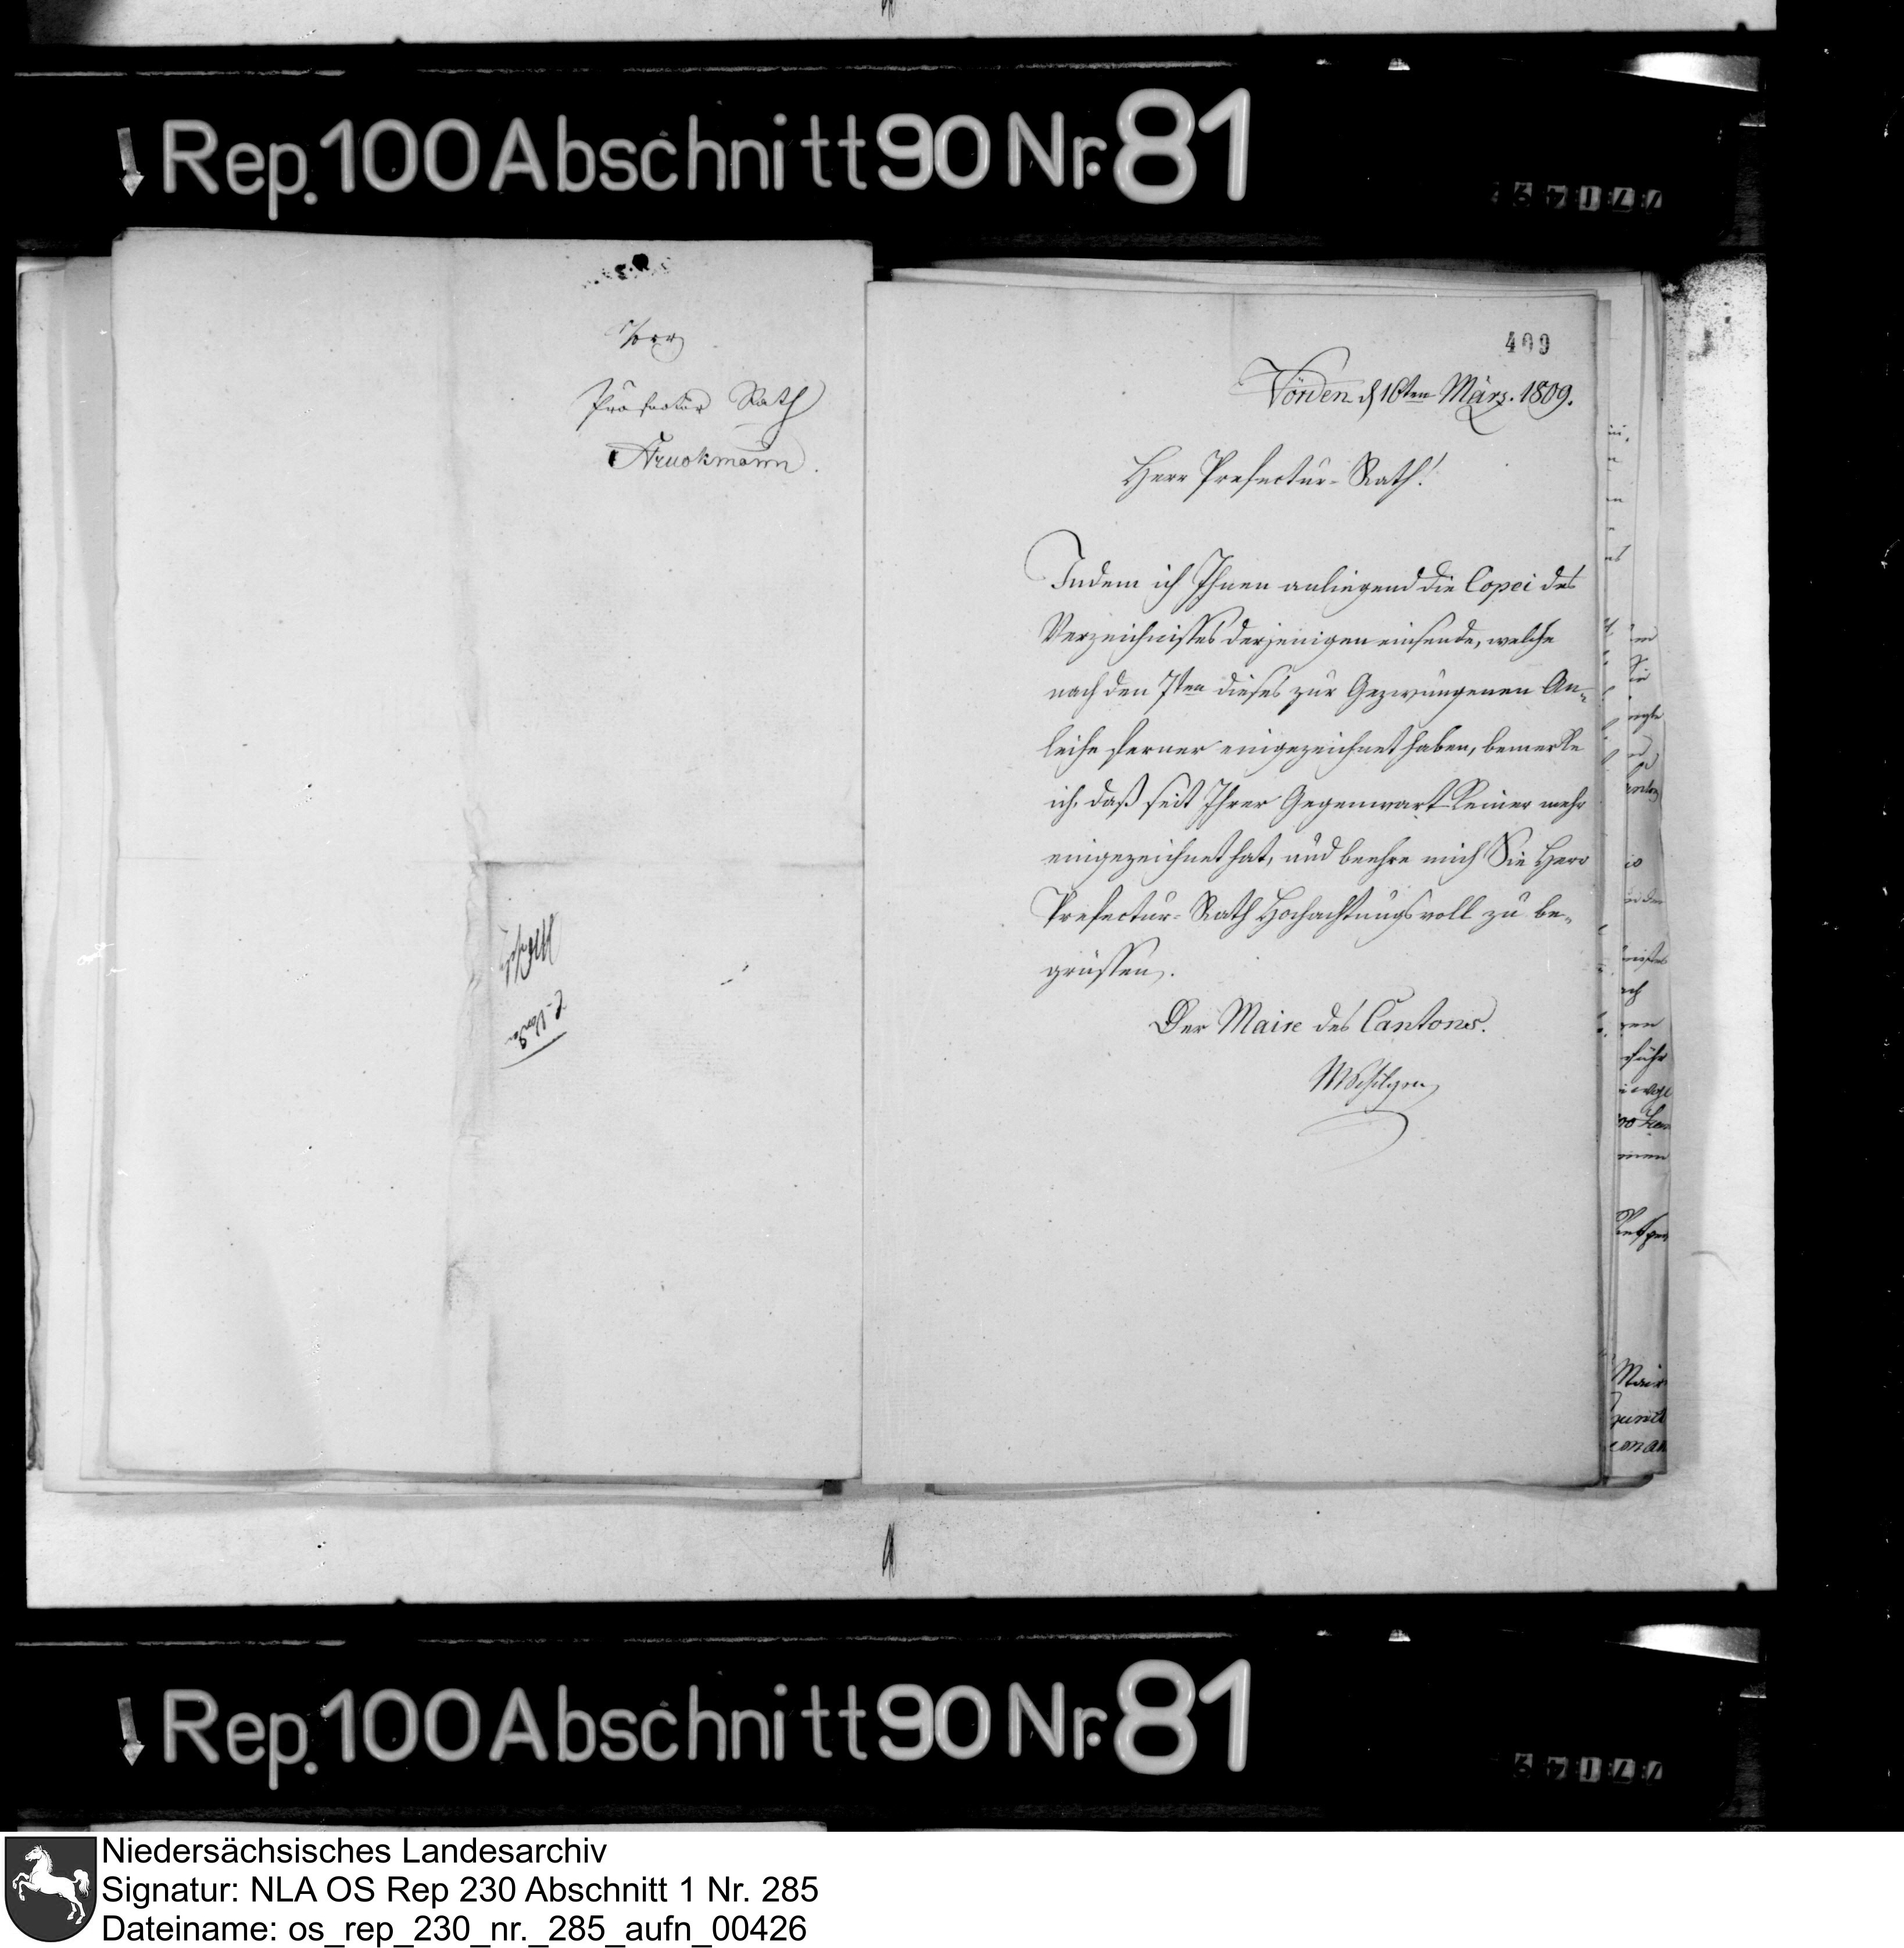 Rep. 100 Abschnitt 90 Nr. 81
Herr
Präfectur Rath
Struckmann.
409
Vörden d 16ten März. 1809.
Herr Prefectur-Rath!
Indem ich Ihnen anliegend die Copei des
Verzeichnisses derjenigen einsende, welche
nach den 7ten dieses zur Gezwungenen An-
leihe ferner eingezeichnet haben, bemerke
ich, daß seit Ihrer Gegenwart keiner mehr
eingezeichnet hat, und beehre mich Sie Herr
Prefectur-Rath Hochachtungsvoll zu be-
grüssen.
Der Maire des Cantons.
Rep. 100 Abschnitt 90 Nr. 81
Niedersächsisches Landesarchiv
Signatur: NLA OS Rep 230 Abschnitt 1 Nr. 285
Dateiname: os_rep_230_nr._285_aufn_00426